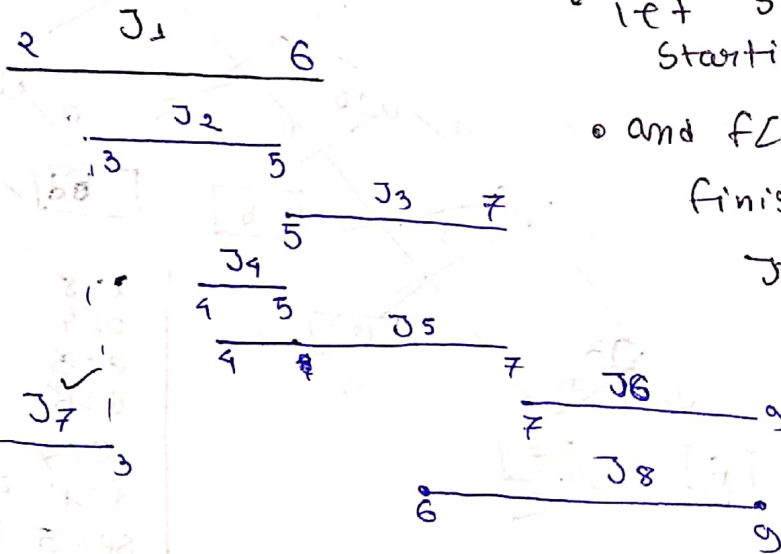 J1
2 6
J2
3 5
J3
5 7
J4
4 5
J5
4 7
J6
7 9
J7
3
J8
6 9
• let
Starti
• and f[
finis
J